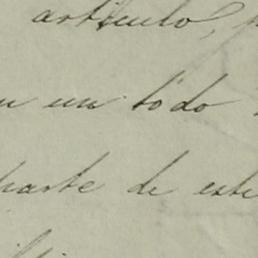 artículo,
en un todo
parte de este